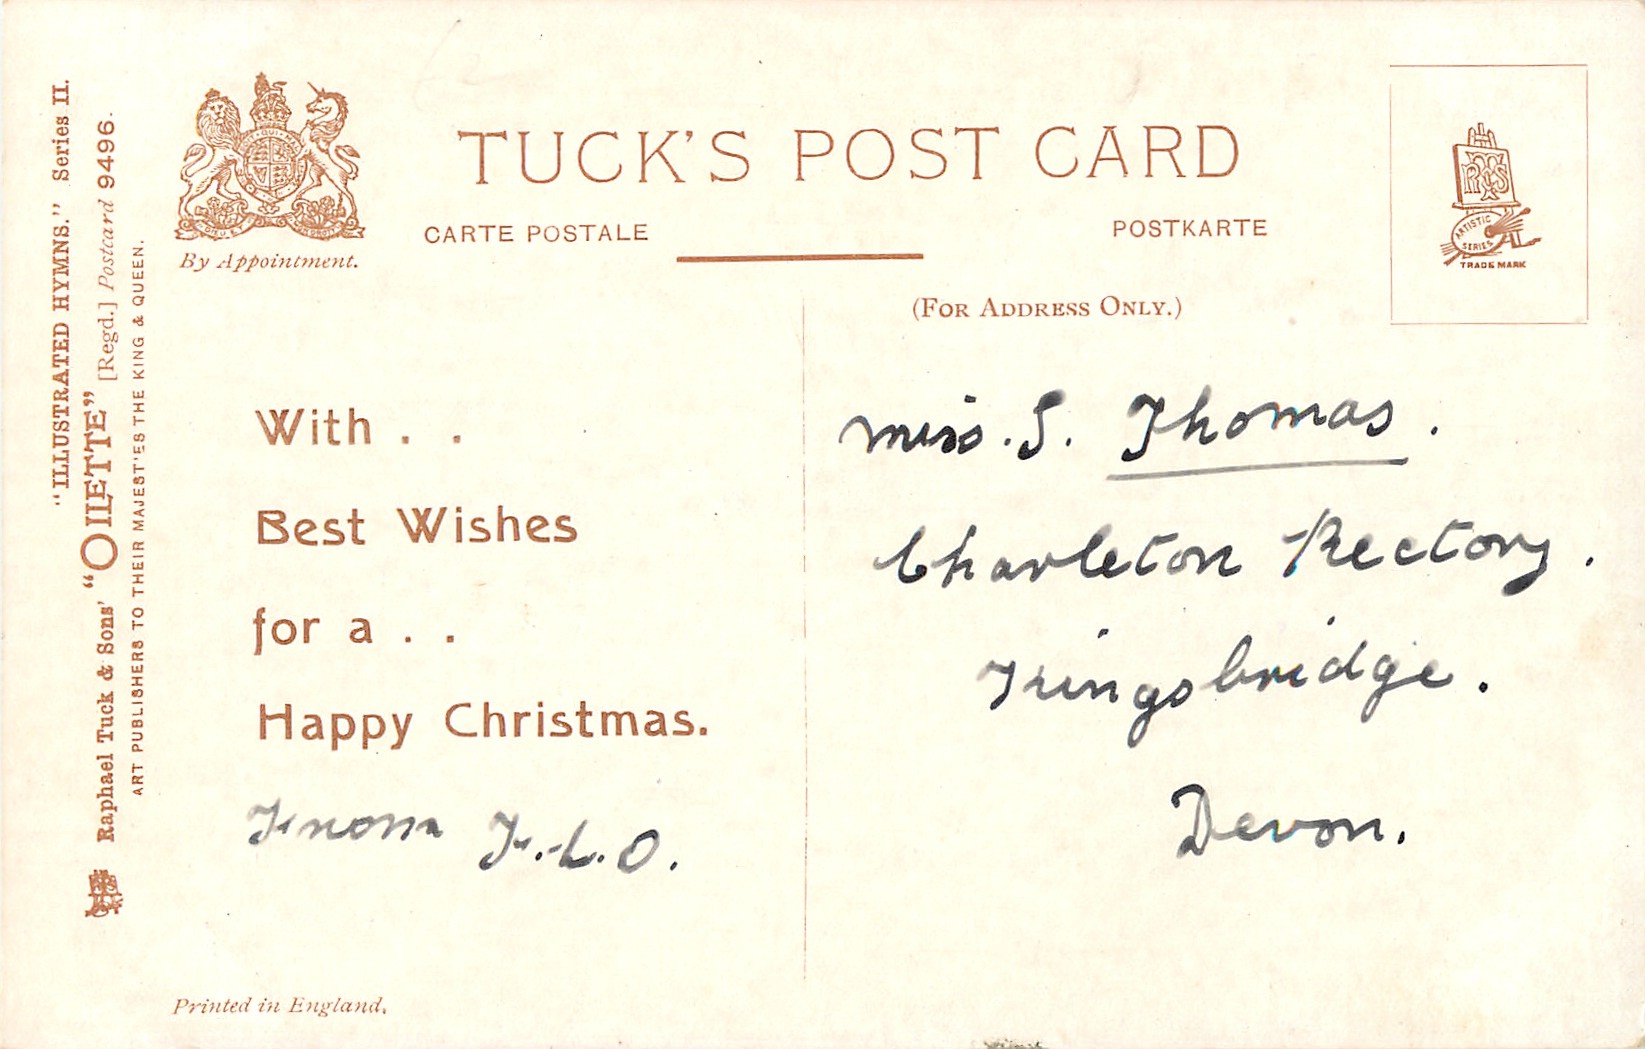 TUCK'S POST CARD
CARTE POSTALE
POSTKARTE
By Appointment.
(FOR ADDRESS ONLY.)
ARTISTIC
SERIES
TRADE MARK
"ILLUSTRATED HYMNS." Series II.
Raphael Tuck & Sons' "OILETTE" [Regd.] Postcard 9496.
ART PUBLISHERS TO THEIR MAJESTIES THE KING & QUEEN.
With . .
Best Wishes
for a . .
Happy Christmas.
From F.L.O.
Miss. S. Thomas.
Charleton Rectory.
Kingsbridge.
Devon.
Printed in England.